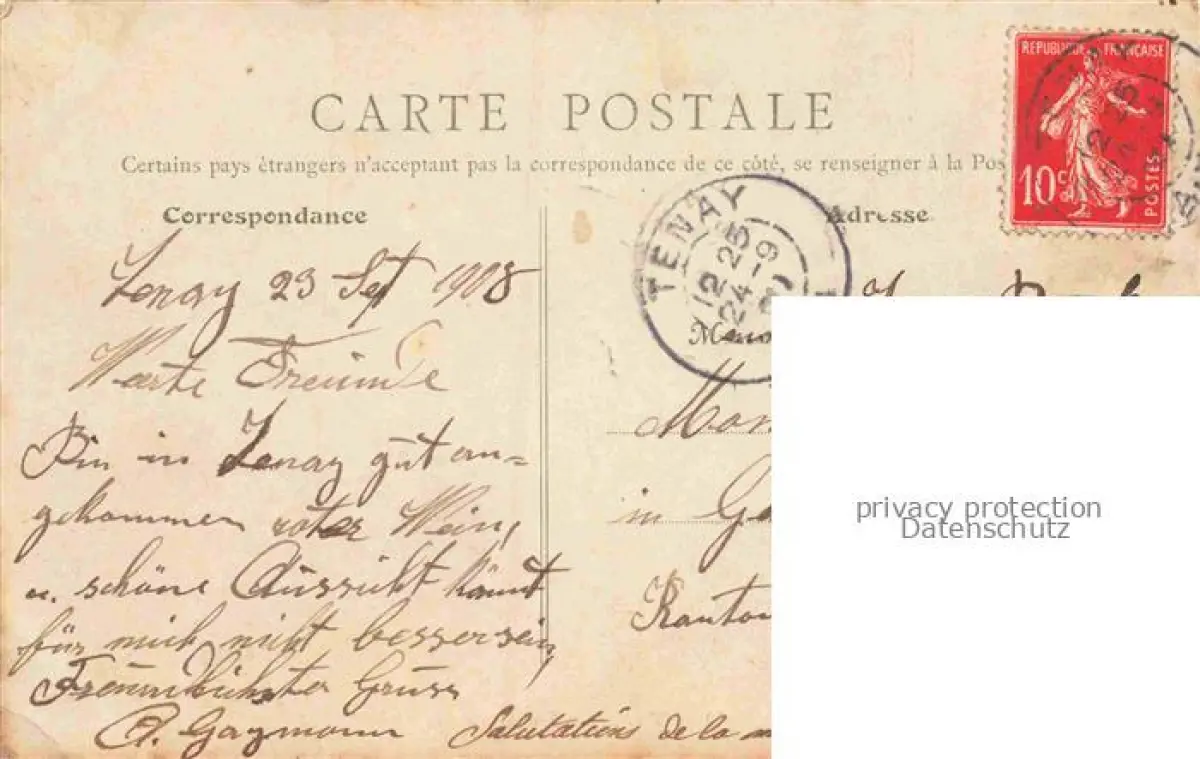 RÉPUBLIQUE FRANÇAISE
10c
POSTES
CARTE POSTALE
Certains pays étrangers n'acceptent pas la correspondance de ce côté, se renseigner à la Pos
Correspondance
Adresse
TENAY
12 25
24-9
Tenay 23 Sept 1908
Werte Freunde
Bin in Tenay gut an=
gekommen roter Wein,
u. schöne Aussicht könnt
für mich nicht besser sein,
Freundlichster Gruss
Salutations de la
in
Kanton
privacy protection
Datenschutz